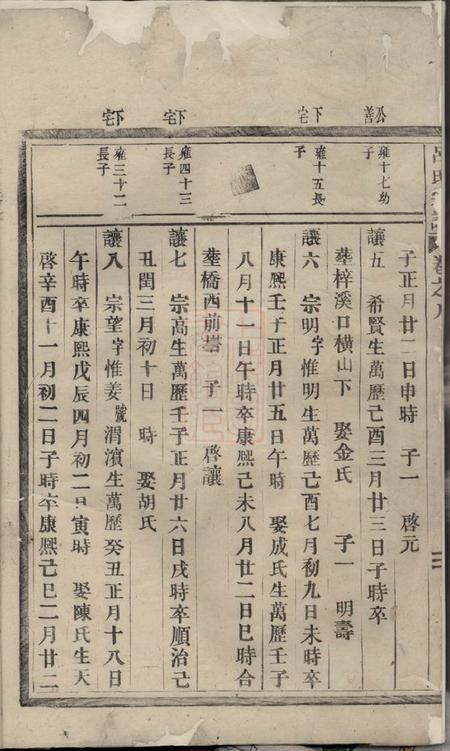 公善
下宅
下宅
下宅
雍十七幼子
雍十五長子
雍四十三長子
雍三十二長子
子正月廿二日申時 子一 啓元
讓五 希賢生萬歷己酉三月廿三日子時卒
塟梓溪口橫山下 娶金氏 子一 明壽
讓六 宗明字惟明生萬歷己酉七月初九日未時卒
康熙壬子正月廿五日午時 娶成氏生萬歷壬子
八月十一日午時卒康熙己未八月廿二日巳時合
塟橋西前塔 子一 啓讓
讓七 宗高生萬歷壬子正月廿六日戌時卒順治己
丑閏三月初十日 時 娶胡氏
讓八 宗望字惟姜號渭濱生萬歷癸丑正月十八日
午時卒康熙戊辰四月初二日寅時 娶陳氏生天
啓辛酉十一月初二日子時卒康熙己巳二月廿二